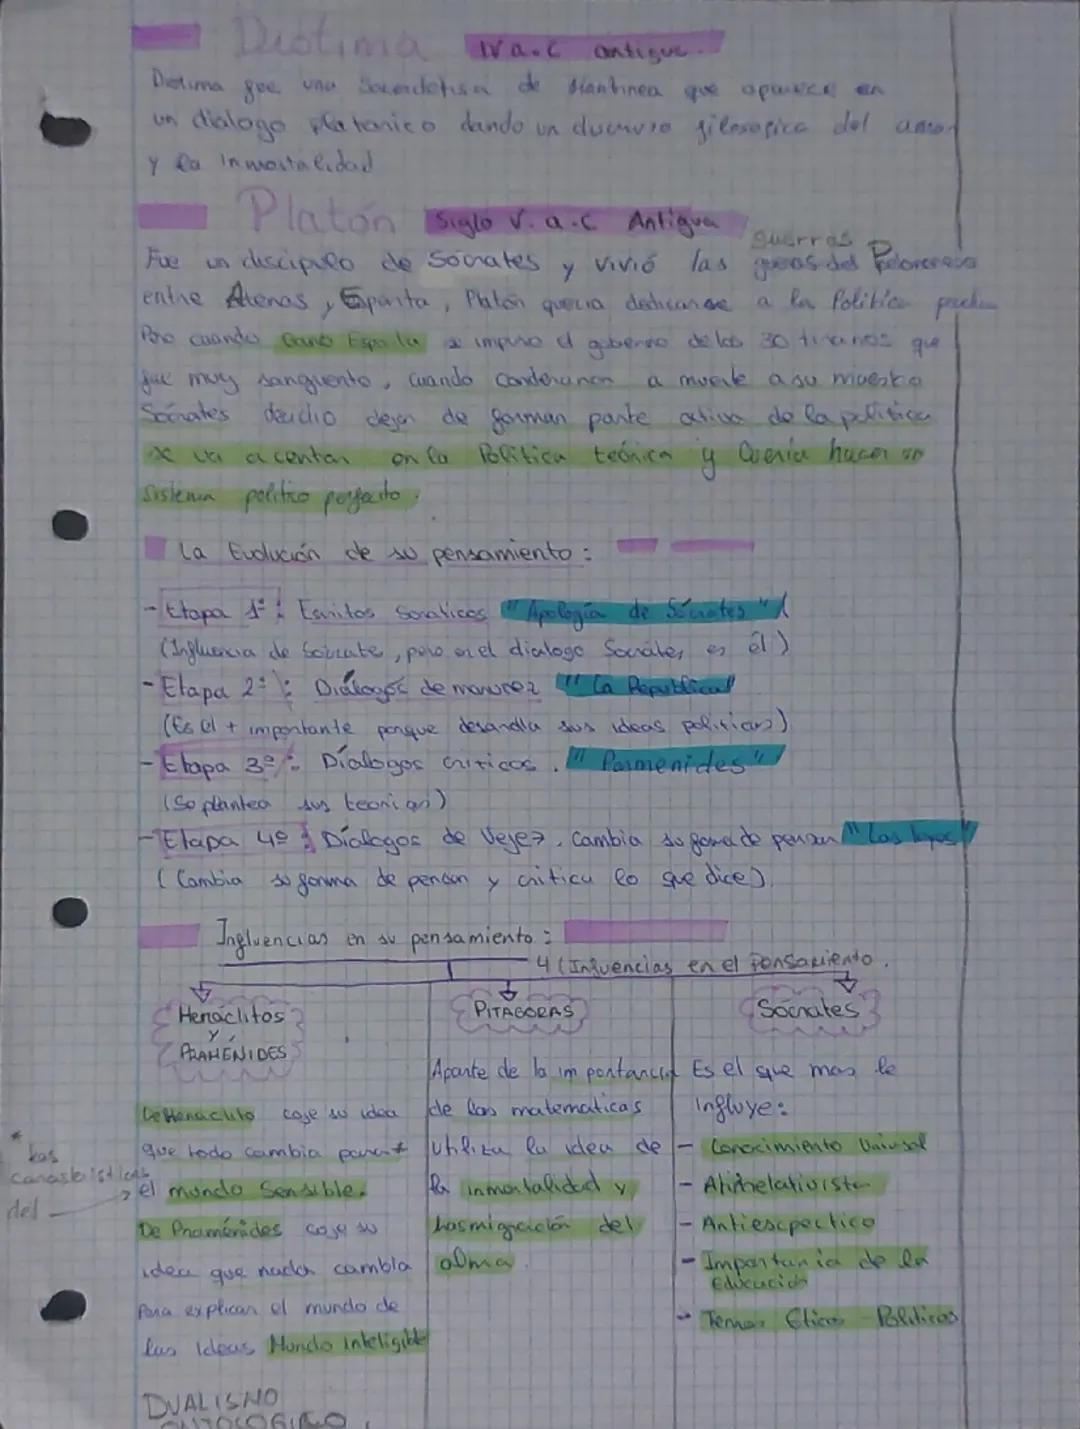 Diotima IV a.C antigua.
Diotima fue una Sacerdotisa de Mantinea que aparece en
un dialogo platonico dando un discurso filosofico del amor
y la Inmortalidad
Platón Siglo V. a.C Antigua
guerras
Fue un discipulo de Sócrates y vivió las del Peloponeso
entre Atenas y Esparta, Platón queria dedicarse a la Politica
Pero cuando Ganó Esparta se impuso el gobierno de los 30 tiranos que
fue muy sangriento, cuando condenaron a muerte a su maestro
Sócrates decidio dejar de formar parte activa de la politica
se va a centrar en la Politica teórica y Queria hacer un
sistema politico perfecto.
La Evolución de su pensamiento:
- Etapa 1ª: Escritos Socraticos "Apología de Sócrates"
(Influencia de Socrate, pero en el dialogo Socrátes es él)
- Etapa 2ª: Diálogos de madurez "La Republica"
(Es el + importante porque desarrolla sus ideas politicas)
- Etapa 3º: Díalogos criticos. "Parmenides"
(Se plantea sus teorias)
- Etapa 4º: Díalogos de Vejez. Cambia su forma de pensar "Las leyes"
(Cambia su forma de pensar y critica lo que dice).
Influencias en su pensamiento:
4 (Influencias en el Pensamiento.
Heráclitos
y
PRAMÉNIDES
PITAGORAS
Sócrates
De Heraclito coje su idea
que todo cambia para *
el mundo Sensible.
* Las
caracteristicas
del
De Praménides coje su
idea que nada cambia
Para explicar el mundo de
las Ideas Mundo inteligible
Aparte de la importancia
de las matematicas
Utiliza la idea de
la inmortalidad y
trasmigración del
alma.
Es el que mas le
Influye:
- Conocimiento Universal
- Antirelativista
- Antiesceptico
- Importancia de la
Educación
- Temas Eticos - Politicos
DUALISMO
ONTOLOGICO.